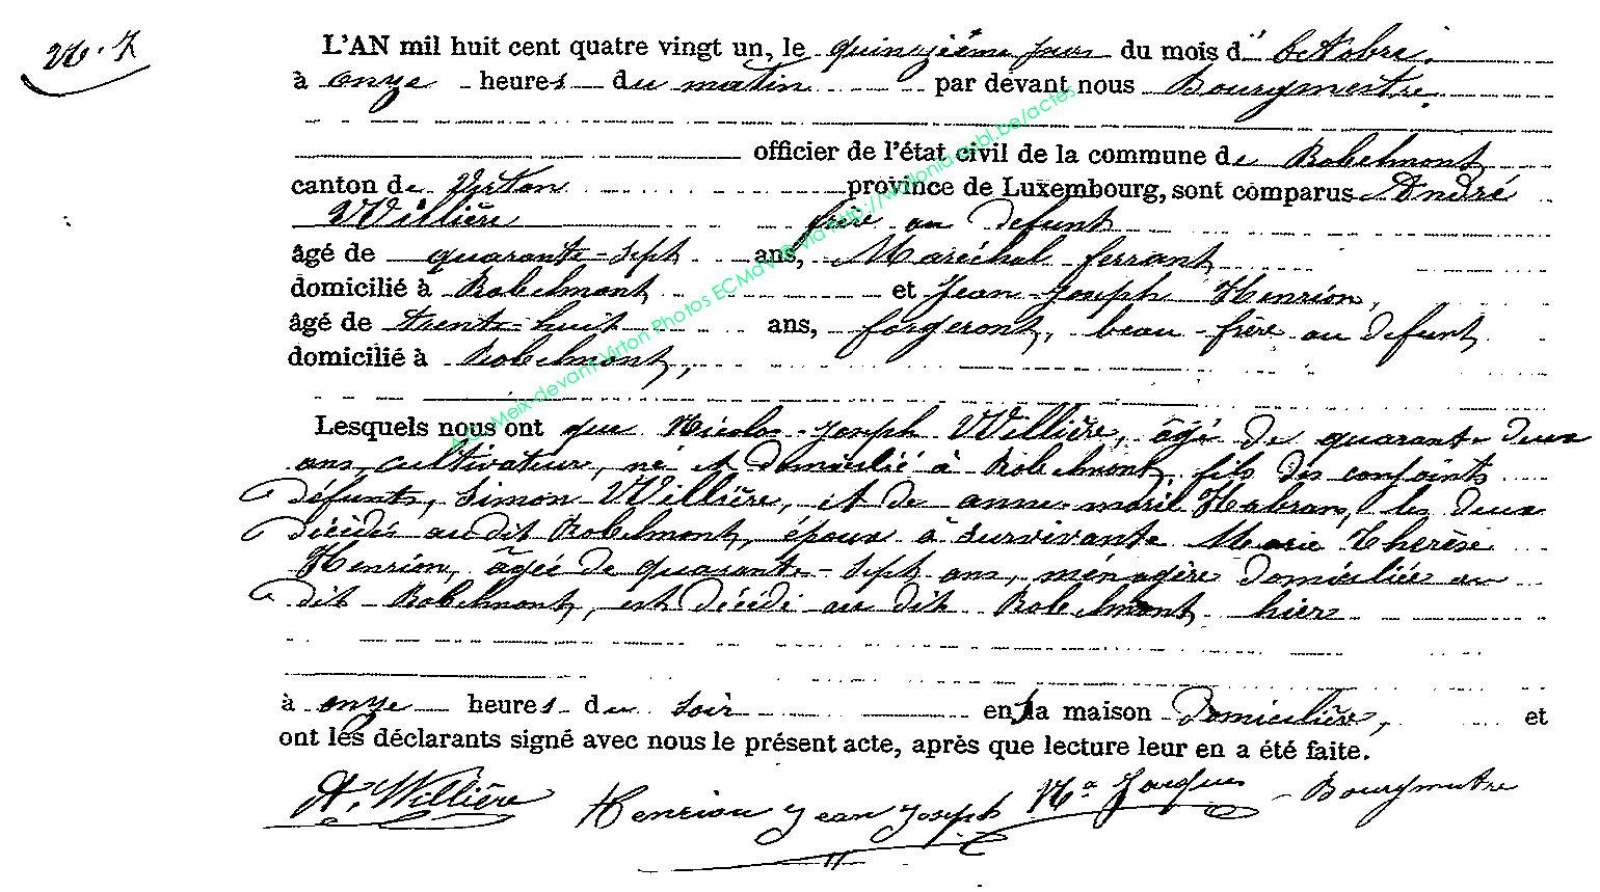 N° 7
L'AN mil huit cent quatre vingt un, le quinzième jour du mois d' Octobre,
à onze heures du matin par devant nous Bourgmestre,
officier de l'état civil de la commune de Robelmont
canton de Virton province de Luxembourg, sont comparus André
Willière frère au défunt
âgé de quarante-sept ans, Maréchal ferrant
domicilié à Robelmont et Jean-Joseph Henrion,
âgé de trente-huit ans, forgeront, beau-frère au défunt
domicilié à Robelmont,
Lesquels nous ont que Nicolas-Joseph Willière, âgé de quarante deux
ans, cultivateur, né et domicilié à Robelmont, fils des conjoints
défunts, Simon Willière, et de anne-marie Habran, les deux
décédés au dit Robelmont, époux à survivante Marie Thérèse
Henrion, âgée de quarante-sept ans, ménagère domiciliée au
dit Robelmont, est décédé au dit Robelmont hier
à onze heures du soir en la maison Domicilière, et
ont les déclarants signé avec nous le présent acte, après que lecture leur en a été faite.
A. Willière Henrion Jean Joseph Jacques Bourgmestre
Meix-devant-Virton Photos ECMdV © via http://wallonia-asbl.be/actes